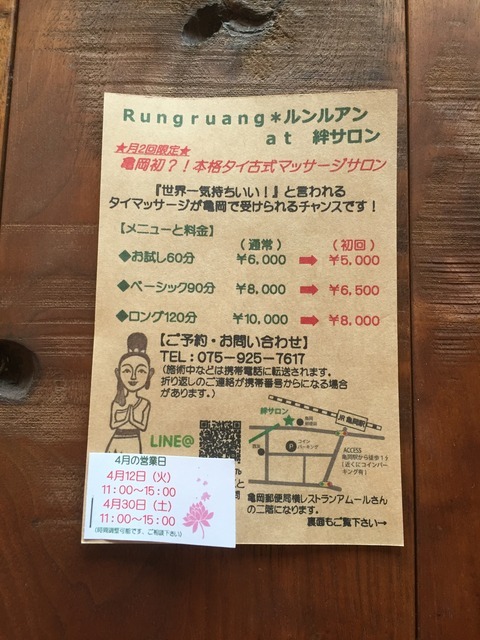 Rungruang*ルンルアン
at 絆サロン
★月2回限定★
亀岡初？！本格タイ古式マッサージサロン
『世界一気持ちいい！』と言われる
タイマッサージが亀岡で受けられるチャンスです！
【メニューと料金】
（通常） （初回）
◆お試し60分 ￥6,000 ➡ ￥5,000
◆ベーシック90分 ￥8,000 ➡ ￥6,500
◆ロング120分 ￥10,000 ➡ ￥8,000
【ご予約・お問い合わせ】
TEL：075-925-7617
（施術中などは携帯電話に転送されます。
折り返しのご連絡が携帯番号からになる場合
があります。）
LINE@
絆サロン
JR 亀岡駅
コイン
パーキング
P
ACCESS
亀岡駅から徒歩1分
（近くにコインパー
キング有）
亀岡郵便局横レストランアムールさん
の二階になります。
裏面もご覧下さい→
4月の営業日
4月12日（火）
11：00～15：00
4月30日（土）
11：00～15：00